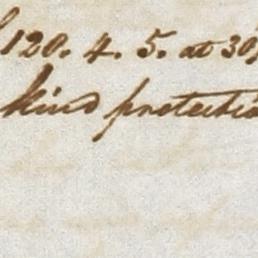 120. 4. 5. at 30
kind protectio